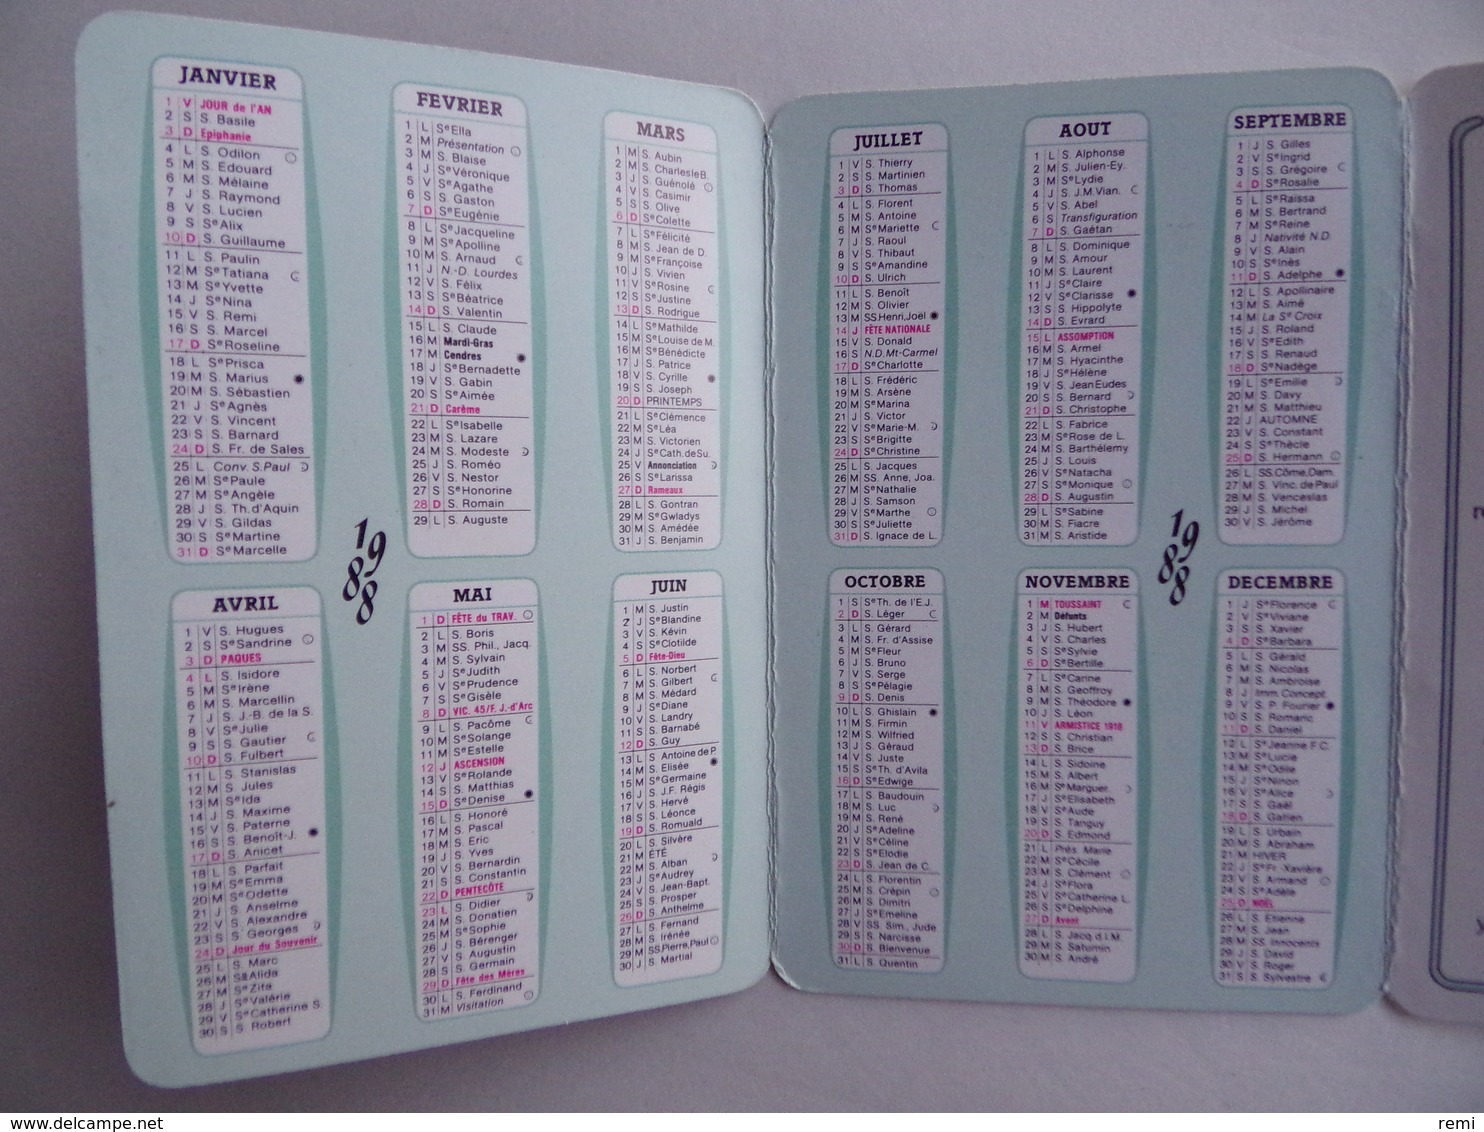 JANVIER
1 V JOUR de l'AN
2 S S. Basile
3 D Epiphanie
4 L S. Odilon
5 M S. Edouard
6 M S. Mélaine
7 J S. Raymond
8 V S. Lucien
9 S Sᵉ Alix
10 D S. Guillaume
11 L S. Paulin
12 M Sᵉ Tatiana
13 M Sᵉ Yvette
14 J Sᵉ Nina
15 V S. Remi
16 S S. Marcel
17 D Sᵉ Roseline
18 L Sᵉ Prisca
19 M S. Marius
20 M S. Sébastien
21 J Sᵉ Agnès
22 V S. Vincent
23 S S. Barnard
24 D S. Fr. de Sales
25 L Conv. S. Paul
26 M Sᵉ Paule
27 M Sᵉ Angèle
28 J S. Th. d'Aquin
29 V S. Gildas
30 S Sᵉ Martine
31 D Sᵉ Marcelle
FEVRIER
1 L Sᵉ Ella
2 M Présentation
3 M S. Blaise
4 J Sᵉ Véronique
5 V Sᵉ Agathe
6 S S. Gaston
7 D Sᵉ Eugénie
8 L Sᵉ Jacqueline
9 M Sᵉ Apolline
10 M S. Arnaud
11 J N.-D. Lourdes
12 V S. Félix
13 S Sᵉ Béatrice
14 D S. Valentin
15 L S. Claude
16 M Mardi-Gras
17 M Cendres
18 J Sᵉ Bernadette
19 V S. Gabin
20 S Sᵉ Aimée
21 D Carême
22 L Sᵉ Isabelle
23 M S. Lazare
24 M S. Modeste
25 J S. Roméo
26 V S. Nestor
27 S Sᵉ Honorine
28 D S. Romain
29 L S. Auguste
MARS
1 M S. Aubin
2 M S. Charles le B.
3 J S. Guénolé
4 V S. Casimir
5 S S. Olive
6 D Sᵉ Colette
7 L Sᵉ Félicité
8 M S. Jean de D.
9 M Sᵉ Françoise
10 J S. Vivien
11 V Sᵉ Rosine
12 S Sᵉ Justine
13 D S. Rodrigue
14 L Sᵉ Mathilde
15 M Sᵉ Louise de M.
16 M Sᵉ Bénédicte
17 J S. Patrice
18 V S. Cyrille
19 S S. Joseph
20 D PRINTEMPS
21 L Sᵉ Clémence
22 M Sᵉ Léa
23 M S. Victorien
24 J Sᵉ Cath. de Su.
25 V Annonciation
26 S Sᵉ Larissa
27 D Rameaux
28 L S. Gontran
29 M Sᵉ Gwladys
30 M S. Amédée
31 J S. Benjamin
1988
AVRIL
1 V S. Hugues
2 S Sᵉ Sandrine
3 D PAQUES
4 L S. Isidore
5 M Sᵉ Irène
6 M S. Marcellin
7 J S. J.-B. de la S.
8 V Sᵉ Julie
9 S S. Gautier
10 D S. Fulbert
11 L S. Stanislas
12 M S. Jules
13 M Sᵉ Ida
14 J S. Maxime
15 V S. Paterne
16 S S. Benoît-J.
17 D S. Anicet
18 L S. Parfait
19 M Sᵉ Emma
20 M Sᵉ Odette
21 J S. Anselme
22 V S. Alexandre
23 S S. Georges
24 D Jour du Souvenir
25 L S. Marc
26 M Sᵉ Alida
27 M Sᵉ Zita
28 J Sᵉ Valérie
29 V Sᵉ Catherine S.
30 S S. Robert
MAI
1 D FÊTE du TRAV.
2 L S. Boris
3 M SS. Phil., Jacq.
4 M S. Sylvain
5 J Sᵉ Judith
6 V Sᵉ Prudence
7 S Sᵉ Gisèle
8 D VIC. 45/F. J.-d'Arc
9 L S. Pacôme
10 M Sᵉ Solange
11 M Sᵉ Estelle
12 J ASCENSION
13 V Sᵉ Rolande
14 S S. Matthias
15 D Sᵉ Denise
16 L S. Honoré
17 M S. Pascal
18 M S. Eric
19 J S. Yves
20 V S. Bernardin
21 S S. Constantin
22 D PENTECÔTE
23 L S. Didier
24 M S. Donatien
25 M Sᵉ Sophie
26 J S. Bérenger
27 V S. Augustin
28 S S. Germain
29 D Fête des Mères
30 L S. Ferdinand
31 M Visitation
JUIN
1 M S. Justin
2 J Sᵉ Blandine
3 V S. Kévin
4 S Sᵉ Clotilde
5 D Fête-Dieu
6 L S. Norbert
7 M S. Gilbert
8 M S. Médard
9 J Sᵉ Diane
10 V S. Landry
11 S S. Barnabé
12 D S. Guy
13 L S. Antoine de P.
14 M S. Elisée
15 M Sᵉ Germaine
16 J S. J.F. Régis
17 V S. Hervé
18 S S. Léonce
19 D S. Romuald
20 L S. Silvère
21 M ÉTÉ
22 M S. Alban
23 J Sᵉ Audrey
24 V S. Jean-Bapt.
25 S S. Prosper
26 D S. Anthelme
27 L S. Fernand
28 M S. Irénée
29 M SS. Pierre, Paul
30 J S. Martial
JUILLET
1 V S. Thierry
2 S S. Martinien
3 D S. Thomas
4 L S. Florent
5 M S. Antoine
6 M Sᵉ Mariette
7 J S. Raoul
8 V S. Thibaut
9 S Sᵉ Amandine
10 D S. Ulrich
11 L S. Benoît
12 M S. Olivier
13 M SS. Henri, Joël
14 J FÊTE NATIONALE
15 V S. Donald
16 S N.D. Mt-Carmel
17 D Sᵉ Charlotte
18 L S. Frédéric
19 M S. Arsène
20 M Sᵉ Marina
21 J S. Victor
22 V Sᵉ Marie-M.
23 S Sᵉ Brigitte
24 D Sᵉ Christine
25 L S. Jacques
26 M SS. Anne, Joa.
27 M Sᵉ Nathalie
28 J S. Samson
29 V Sᵉ Marthe
30 S Sᵉ Juliette
31 D S. Ignace de L.
AOUT
1 L S. Alphonse
2 M S. Julien-Ey.
3 M Sᵉ Lydie
4 J S. J.M. Vian.
5 V S. Abel
6 S Transfiguration
7 D S. Gaétan
8 L S. Dominique
9 M S. Amour
10 M S. Laurent
11 J Sᵉ Claire
12 V Sᵉ Clarisse
13 S S. Hippolyte
14 D S. Evrard
15 L ASSOMPTION
16 M S. Armel
17 M S. Hyacinthe
18 J Sᵉ Hélène
19 V S. Jean Eudes
20 S S. Bernard
21 D S. Christophe
22 L S. Fabrice
23 M Sᵉ Rose de L.
24 M S. Barthélemy
25 J S. Louis
26 V Sᵉ Natacha
27 S Sᵉ Monique
28 D S. Augustin
29 L Sᵉ Sabine
30 M S. Fiacre
31 M S. Aristide
SEPTEMBRE
1 J S. Gilles
2 V Sᵉ Ingrid
3 S S. Grégoire
4 D Sᵉ Rosalie
5 L Sᵉ Raïssa
6 M S. Bertrand
7 M Sᵉ Reine
8 J Nativité N.D.
9 V S. Alain
10 S Sᵉ Inès
11 D S. Adelphe
12 L S. Apollinaire
13 M S. Aimé
14 M La Sᵉ Croix
15 J S. Roland
16 V Sᵉ Edith
17 S S. Renaud
18 D Sᵉ Nadège
19 L Sᵉ Emilie
20 M S. Davy
21 M S. Matthieu
22 J AUTOMNE
23 V S. Constant
24 S Sᵉ Thècle
25 D S. Hermann
26 L SS. Côme, Dam.
27 M S. Vinc. de Paul
28 M S. Venceslas
29 J S. Michel
30 V S. Jérôme
1988
OCTOBRE
1 S Sᵉ Th. de l'E.J.
2 D S. Léger
3 L S. Gérard
4 M S. Fr. d'Assise
5 M Sᵉ Fleur
6 J S. Bruno
7 V S. Serge
8 S Sᵉ Pélagie
9 D S. Denis
10 L S. Ghislain
11 M S. Firmin
12 M S. Wilfried
13 J S. Géraud
14 V S. Juste
15 S Sᵉ Th. d'Avila
16 D Sᵉ Edwige
17 L S. Baudouin
18 M S. Luc
19 M S. René
20 J Sᵉ Adeline
21 V Sᵉ Céline
22 S Sᵉ Elodie
23 D S. Jean de C.
24 L S. Florentin
25 M S. Crépin
26 M S. Dimitri
27 J Sᵉ Emeline
28 V SS. Sim., Jude
29 S S. Narcisse
30 D S. Bienvenue
31 L S. Quentin
NOVEMBRE
1 M TOUSSAINT
2 M Défunts
3 J S. Hubert
4 V S. Charles
5 S Sᵉ Sylvie
6 D Sᵉ Bertille
7 L Sᵉ Carine
8 M S. Geoffroy
9 M S. Théodore
10 J S. Léon
11 V ARMISTICE 1918
12 S S. Christian
13 D S. Brice
14 L S. Sidoine
15 M S. Albert
16 M Sᵉ Marguer.
17 J Sᵉ Elisabeth
18 V Sᵉ Aude
19 S S. Tanguy
20 D S. Edmond
21 L Prés. Marie
22 M Sᵉ Cécile
23 M S. Clément
24 J Sᵉ Flora
25 V Sᵉ Catherine L.
26 S Sᵉ Delphine
27 D Avent
28 L S. Jacq. d.l.M.
29 M S. Saturnin
30 M S. André
DECEMBRE
1 J Sᵉ Florence
2 V Sᵉ Viviane
3 S S. Xavier
4 D Sᵉ Barbara
5 L S. Gérald
6 M S. Nicolas
7 M S. Ambroise
8 J Imm. Concept.
9 V S. P. Fourier
10 S S. Romaric
11 D S. Daniel
12 L Sᵉ Jeanne F.C.
13 M Sᵉ Lucie
14 M Sᵉ Odile
15 J Sᵉ Ninon
16 V Sᵉ Alice
17 S S. Gaël
18 D S. Gatien
19 L S. Urbain
20 M S. Abraham
21 M HIVER
22 J Sᵉ Fr.-Xavière
23 V S. Armand
24 S Sᵉ Adèle
25 D NOËL
26 L S. Etienne
27 M S. Jean
28 M SS. Innocents
29 J S. David
30 V S. Roger
31 S S. Sylvestre
www.delcampe.net
remi